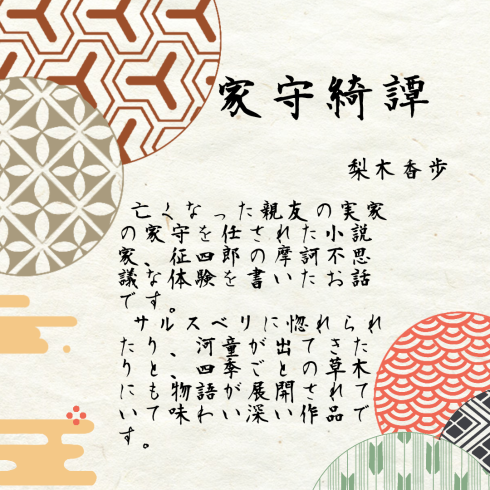 家守綺譚
梨木香歩
亡くなった親友の実家
の家守を任された小説
家、征四郎の摩訶不思
議な体験を書いたお話
です。
サルスベリに惚れられ
たり、河童が出てきた
りと、四季ごとの草木
にも物語が展開されて
いて味わい深い作品で
す。